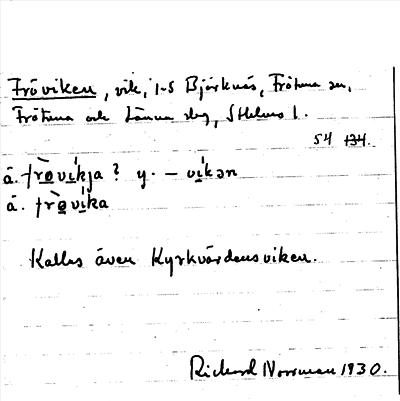 Fröviken, vik, 1-S Björknäs, Frötuna sn,
Frötuna och Länna skg, Sthlms l.
54 134.
å. frövikja? y. – vikən
å. frövika
Kallas även Kyrkvärdensviken.
Rickard Norrman 1930.